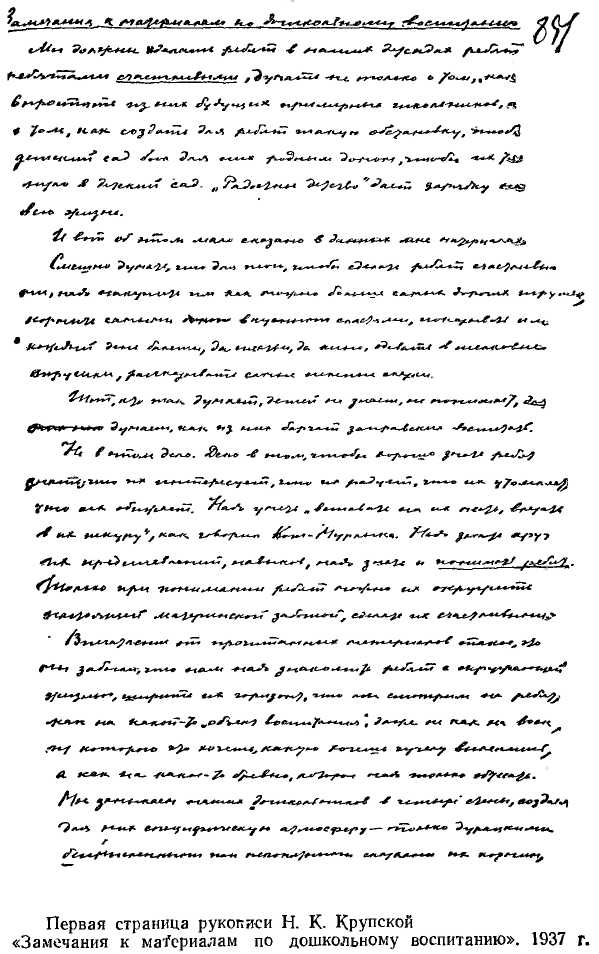 Замечания к материалам по дошкольному воспитанию
891
Мы должны сделать ребят в наших детсадах ребят
ребятами счастливыми, думать не только о том, как
вырастить из них будущих примерных школьников, а
о том, как создать для ребят такую обстановку, чтобы
детский сад был для них родным домом, чтобы их
в детский сад. „Радостное детство" дает зарядку на
всю жизнь.
И вот об этом мало сказано в данных мне материалах
Смешно думать, что для того, чтобы сделать ребят счастливы
ми, надо накупить им как можно больше самых дорогих игрушек,
кормить самыми вкусными сластями, показывать им
каждый день балеты, да театры, да кино, одевать в шелковые
рассказывать самые сказки.
Тот, кто так думает, детей не знает, не понимает,
думает, как из них
Не в этом дело. Дело в том, чтобы хорошо знать ребят
знать, что их интересует, что их радует, что их утомляет
что их обижает. Надо уметь „ставать на их место, влезать
в их шкуру", как говорил Кот-Мурлыка. Надо знать круг
их представлений, навыков, надо знать и понимать ребят.
Только при понимании ребят можно их окружить
настоящей материнской заботой, сделать их счастливыми
Впечатление от прочитанных материалов такое, что
мы забыли, что нам надо знакомить ребят с окружающей
жизнью, ширить их горизонт, что мы смотрим на ребят,
как на какой-то „объект воспитания", даже не как на воск,
из которого что хочешь, какую хочешь куклу вылепишь,
а как на какое-то бревно, которое надо только обтесать.
Мы замыкаем наших дошкольников в четыре стены, создаем
для них специфическую атмосферу — только дурацкими
бессмысленными или непонятными сказками их кормим,
Первая страница рукописи Н. К. Крупской
«Замечания к материалам по дошкольному воспитанию». 1937 г.